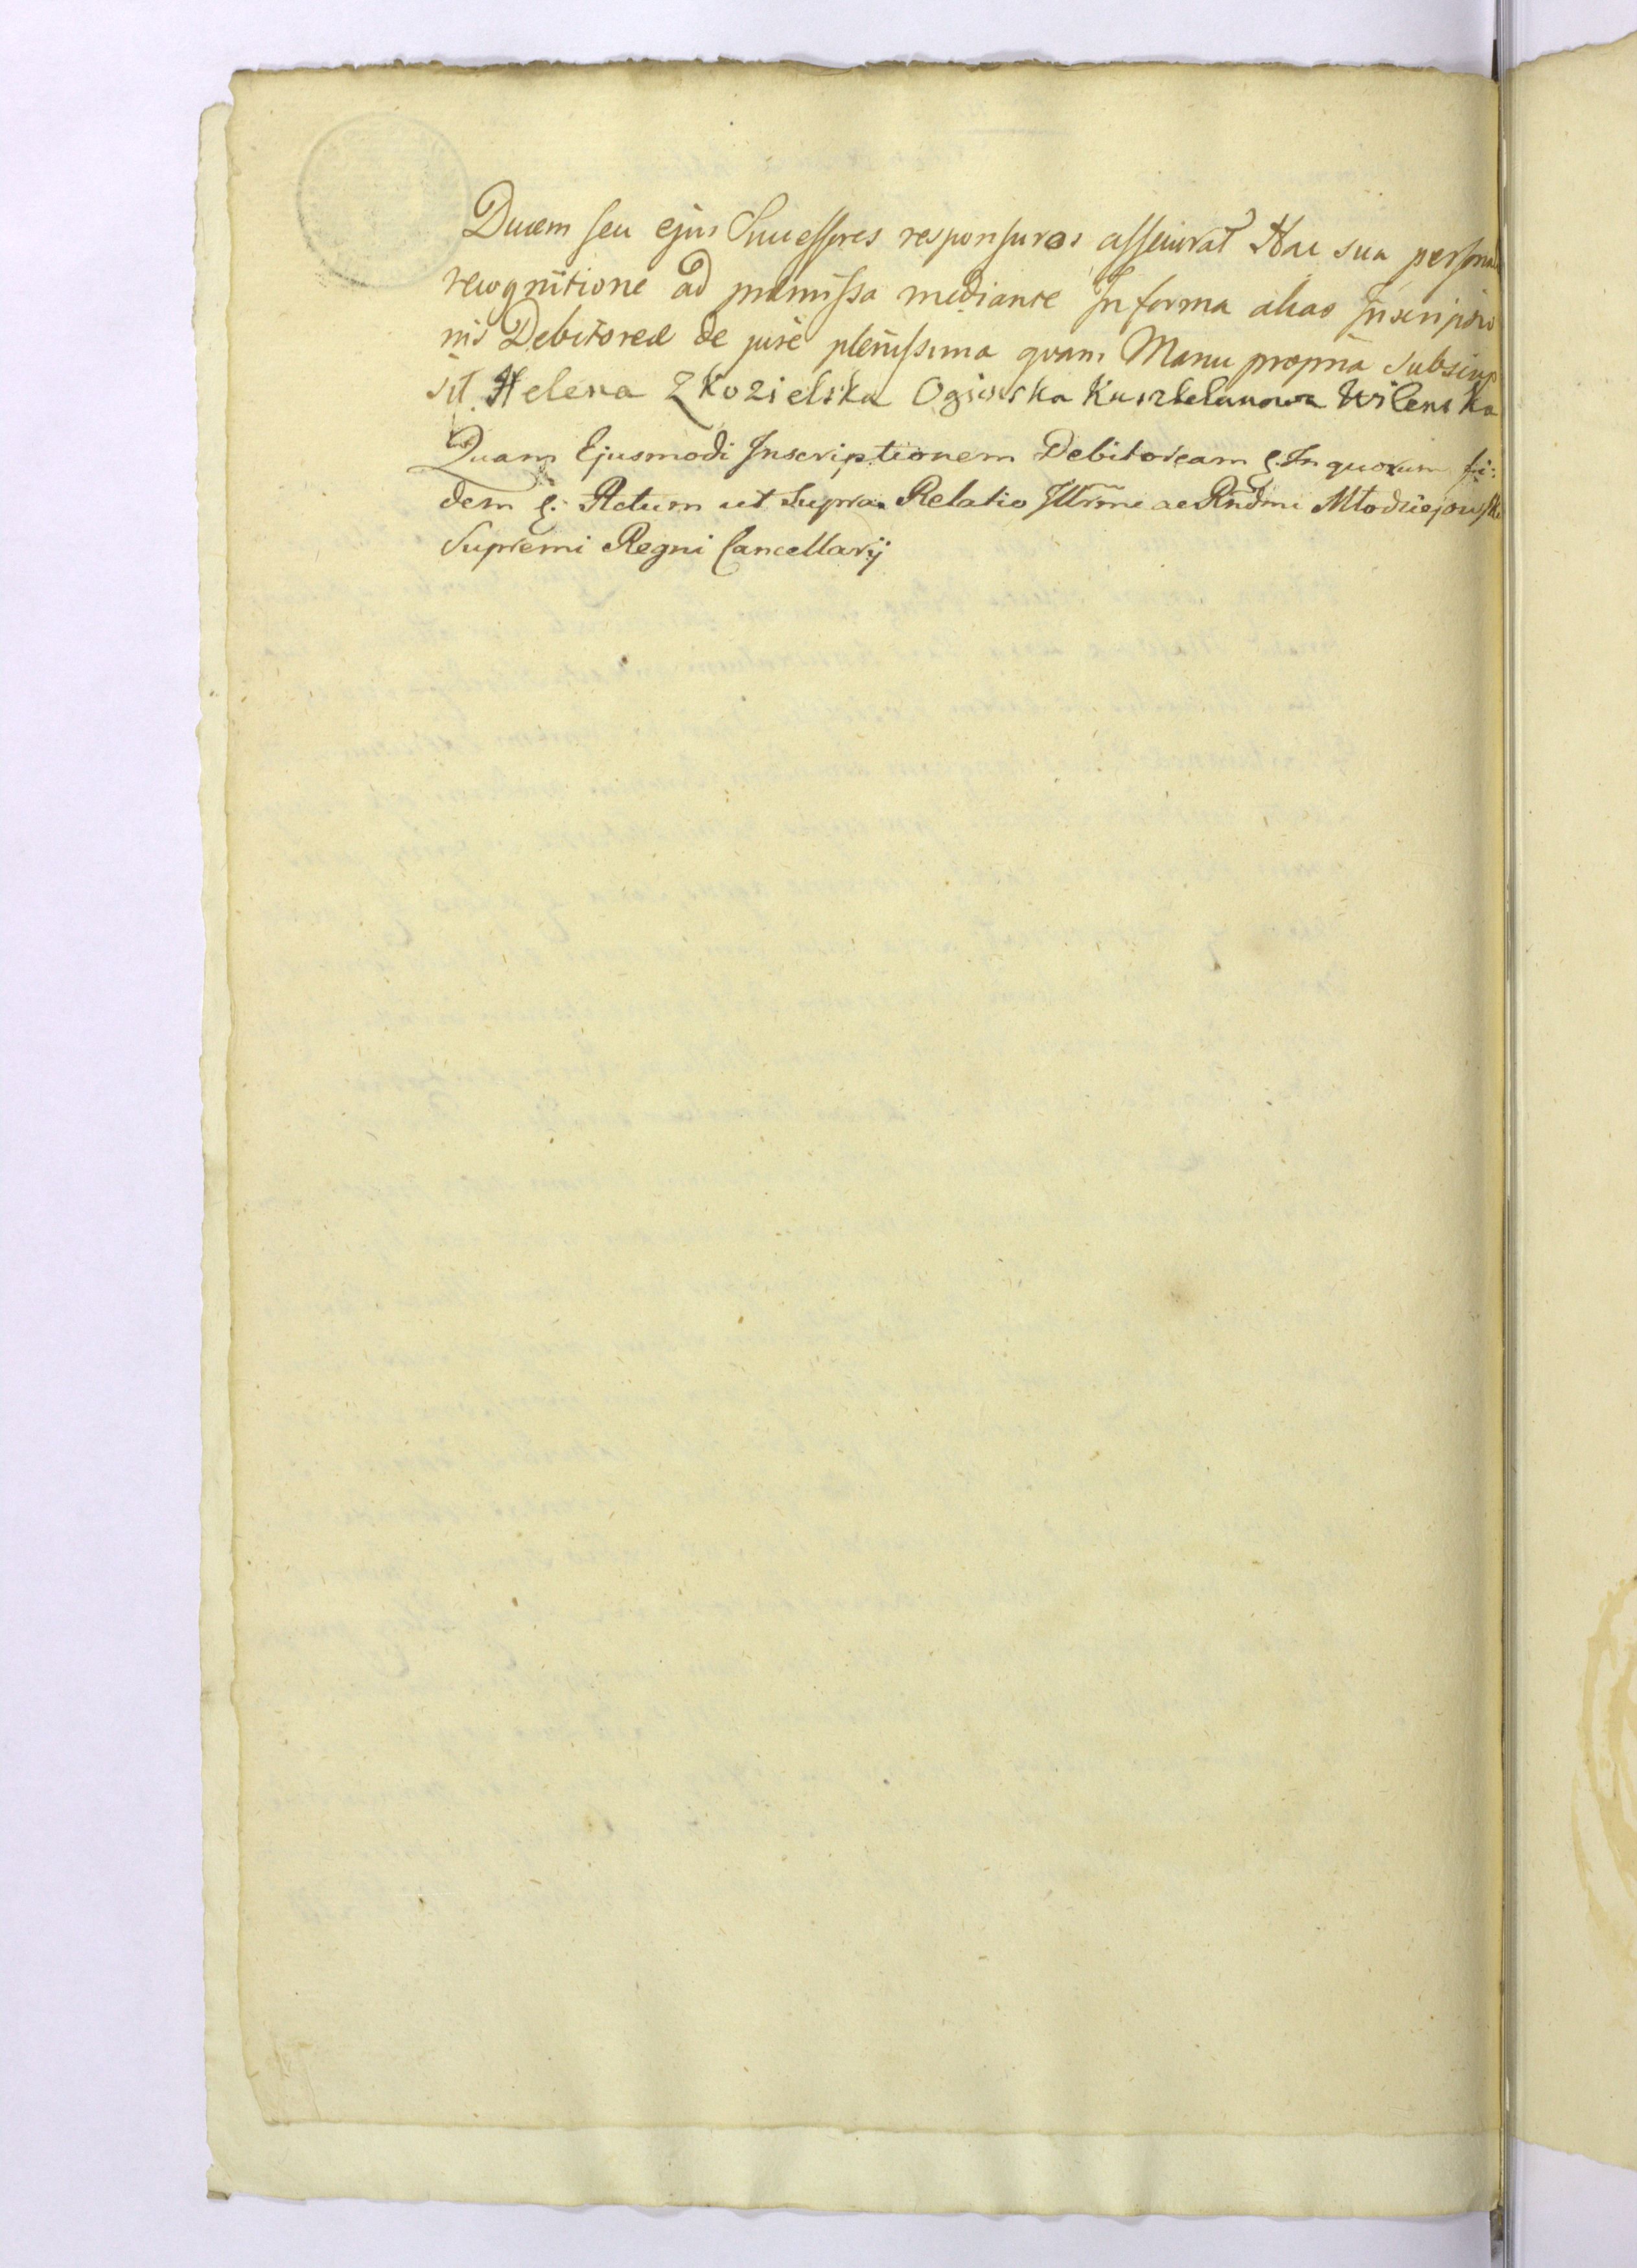 Ducem seu ejus Successores responsuros assecurat Hac sua personali
recognitione ad præmissa mediante In forma alias Inscriptio
nis Debitoreæ de jure plenissima quam Manu propria subscrip
sit. Helena Z Kozielska Oginska Kasztelanowa Wilenska
Quam Ejusmodi Inscriptionem Debitoream &. In quorum fi:
dem &. Actum ut Supra. Relatio Illr̃mi ac Rñdmi Młodziejowski
Supremi Regni Cancellarij